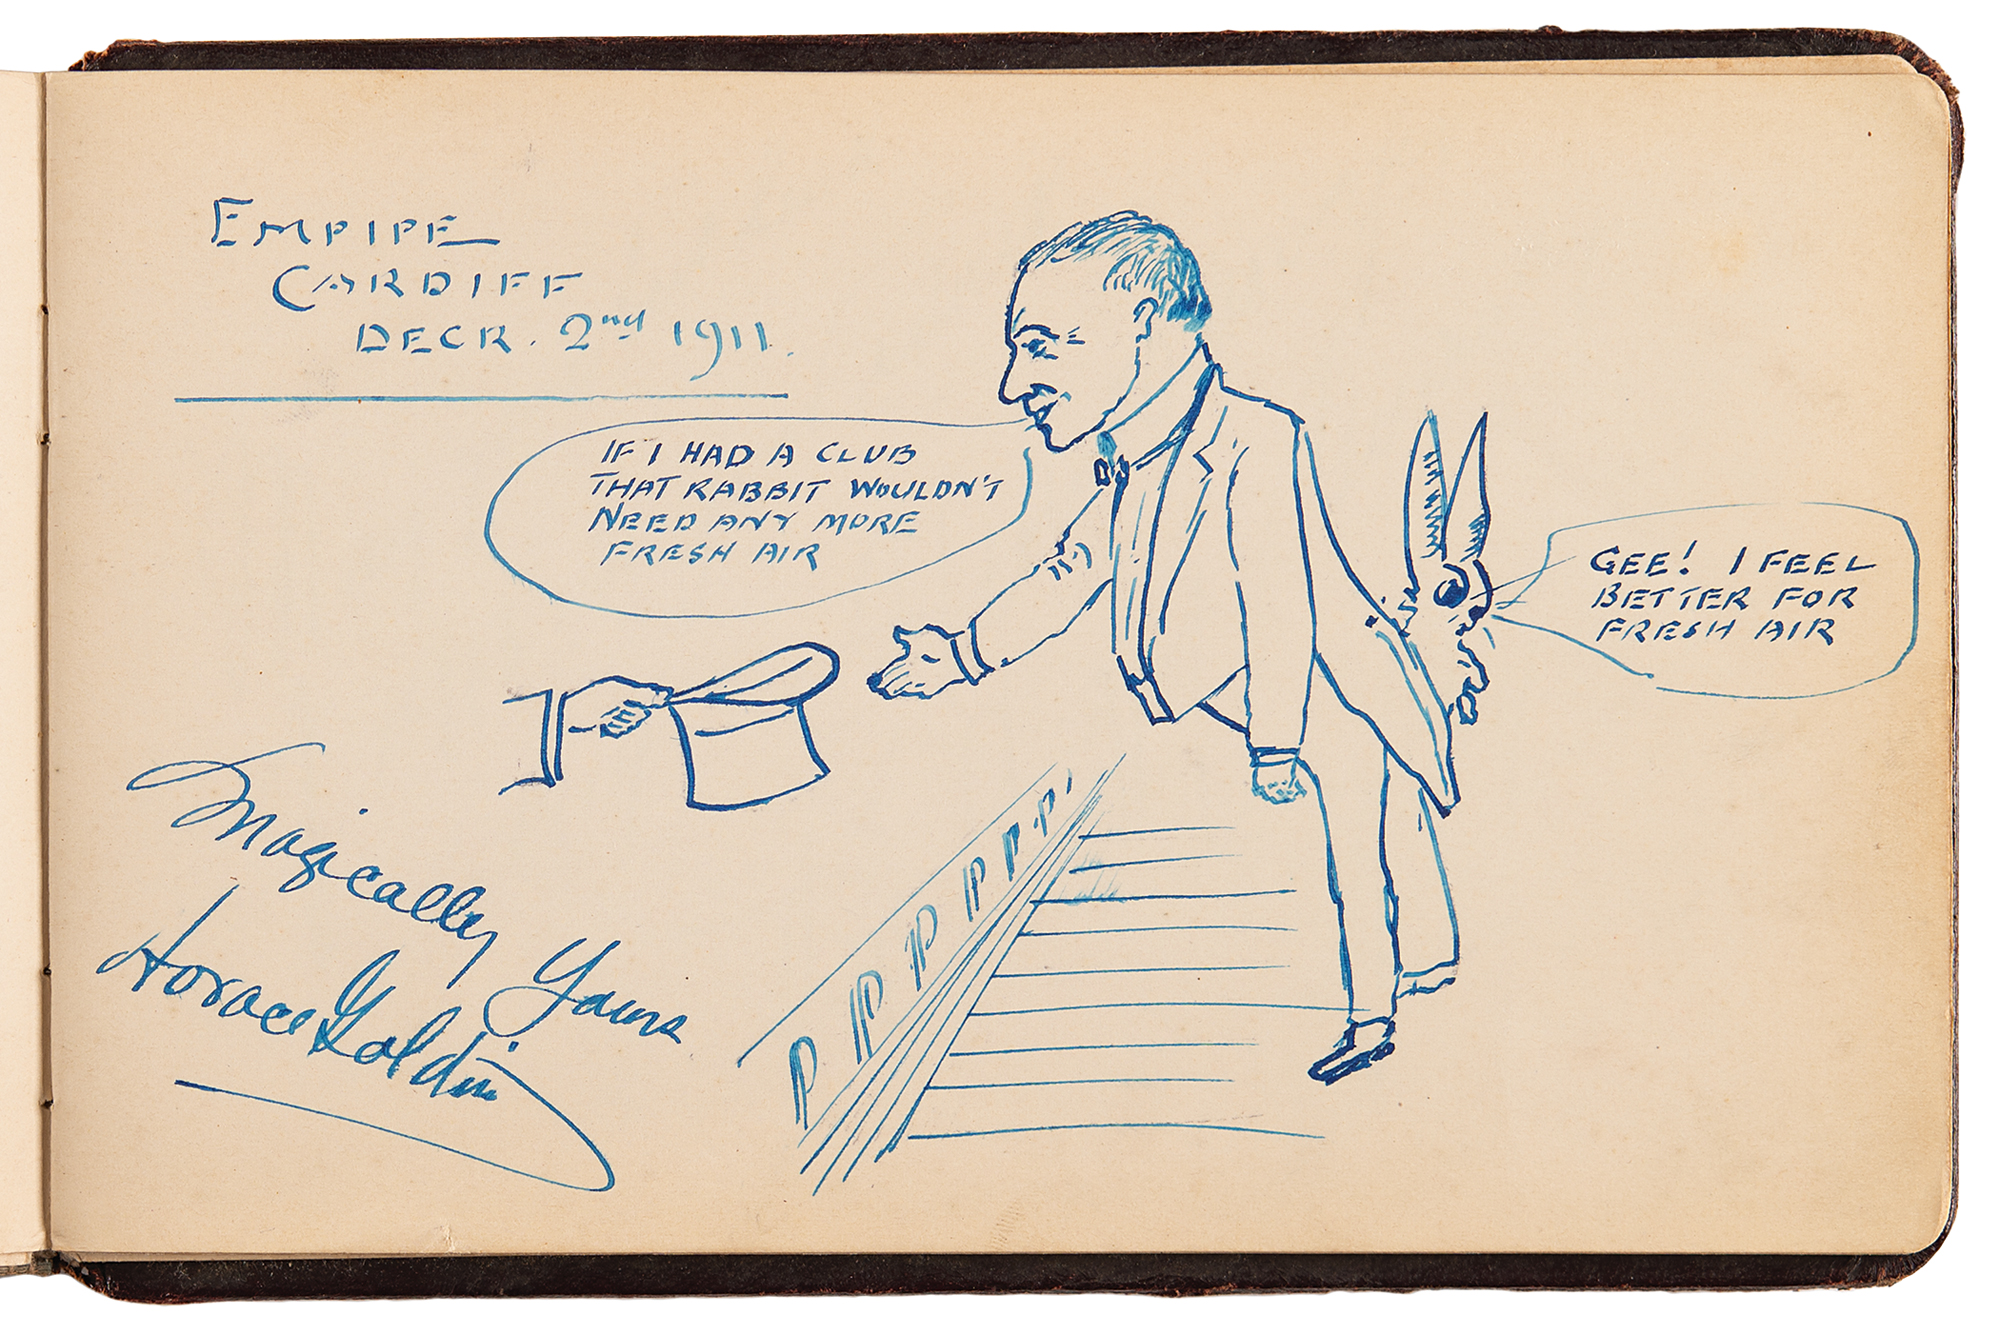 EMPIRE
CARDIFF
DECR. 2nd 1911.
IF I HAD A CLUB
THAT RABBIT WOULDN'T
NEED ANY MORE
FRESH AIR
GEE! I FEEL
BETTER FOR
FRESH AIR
Magically Yours
Horace Goldin